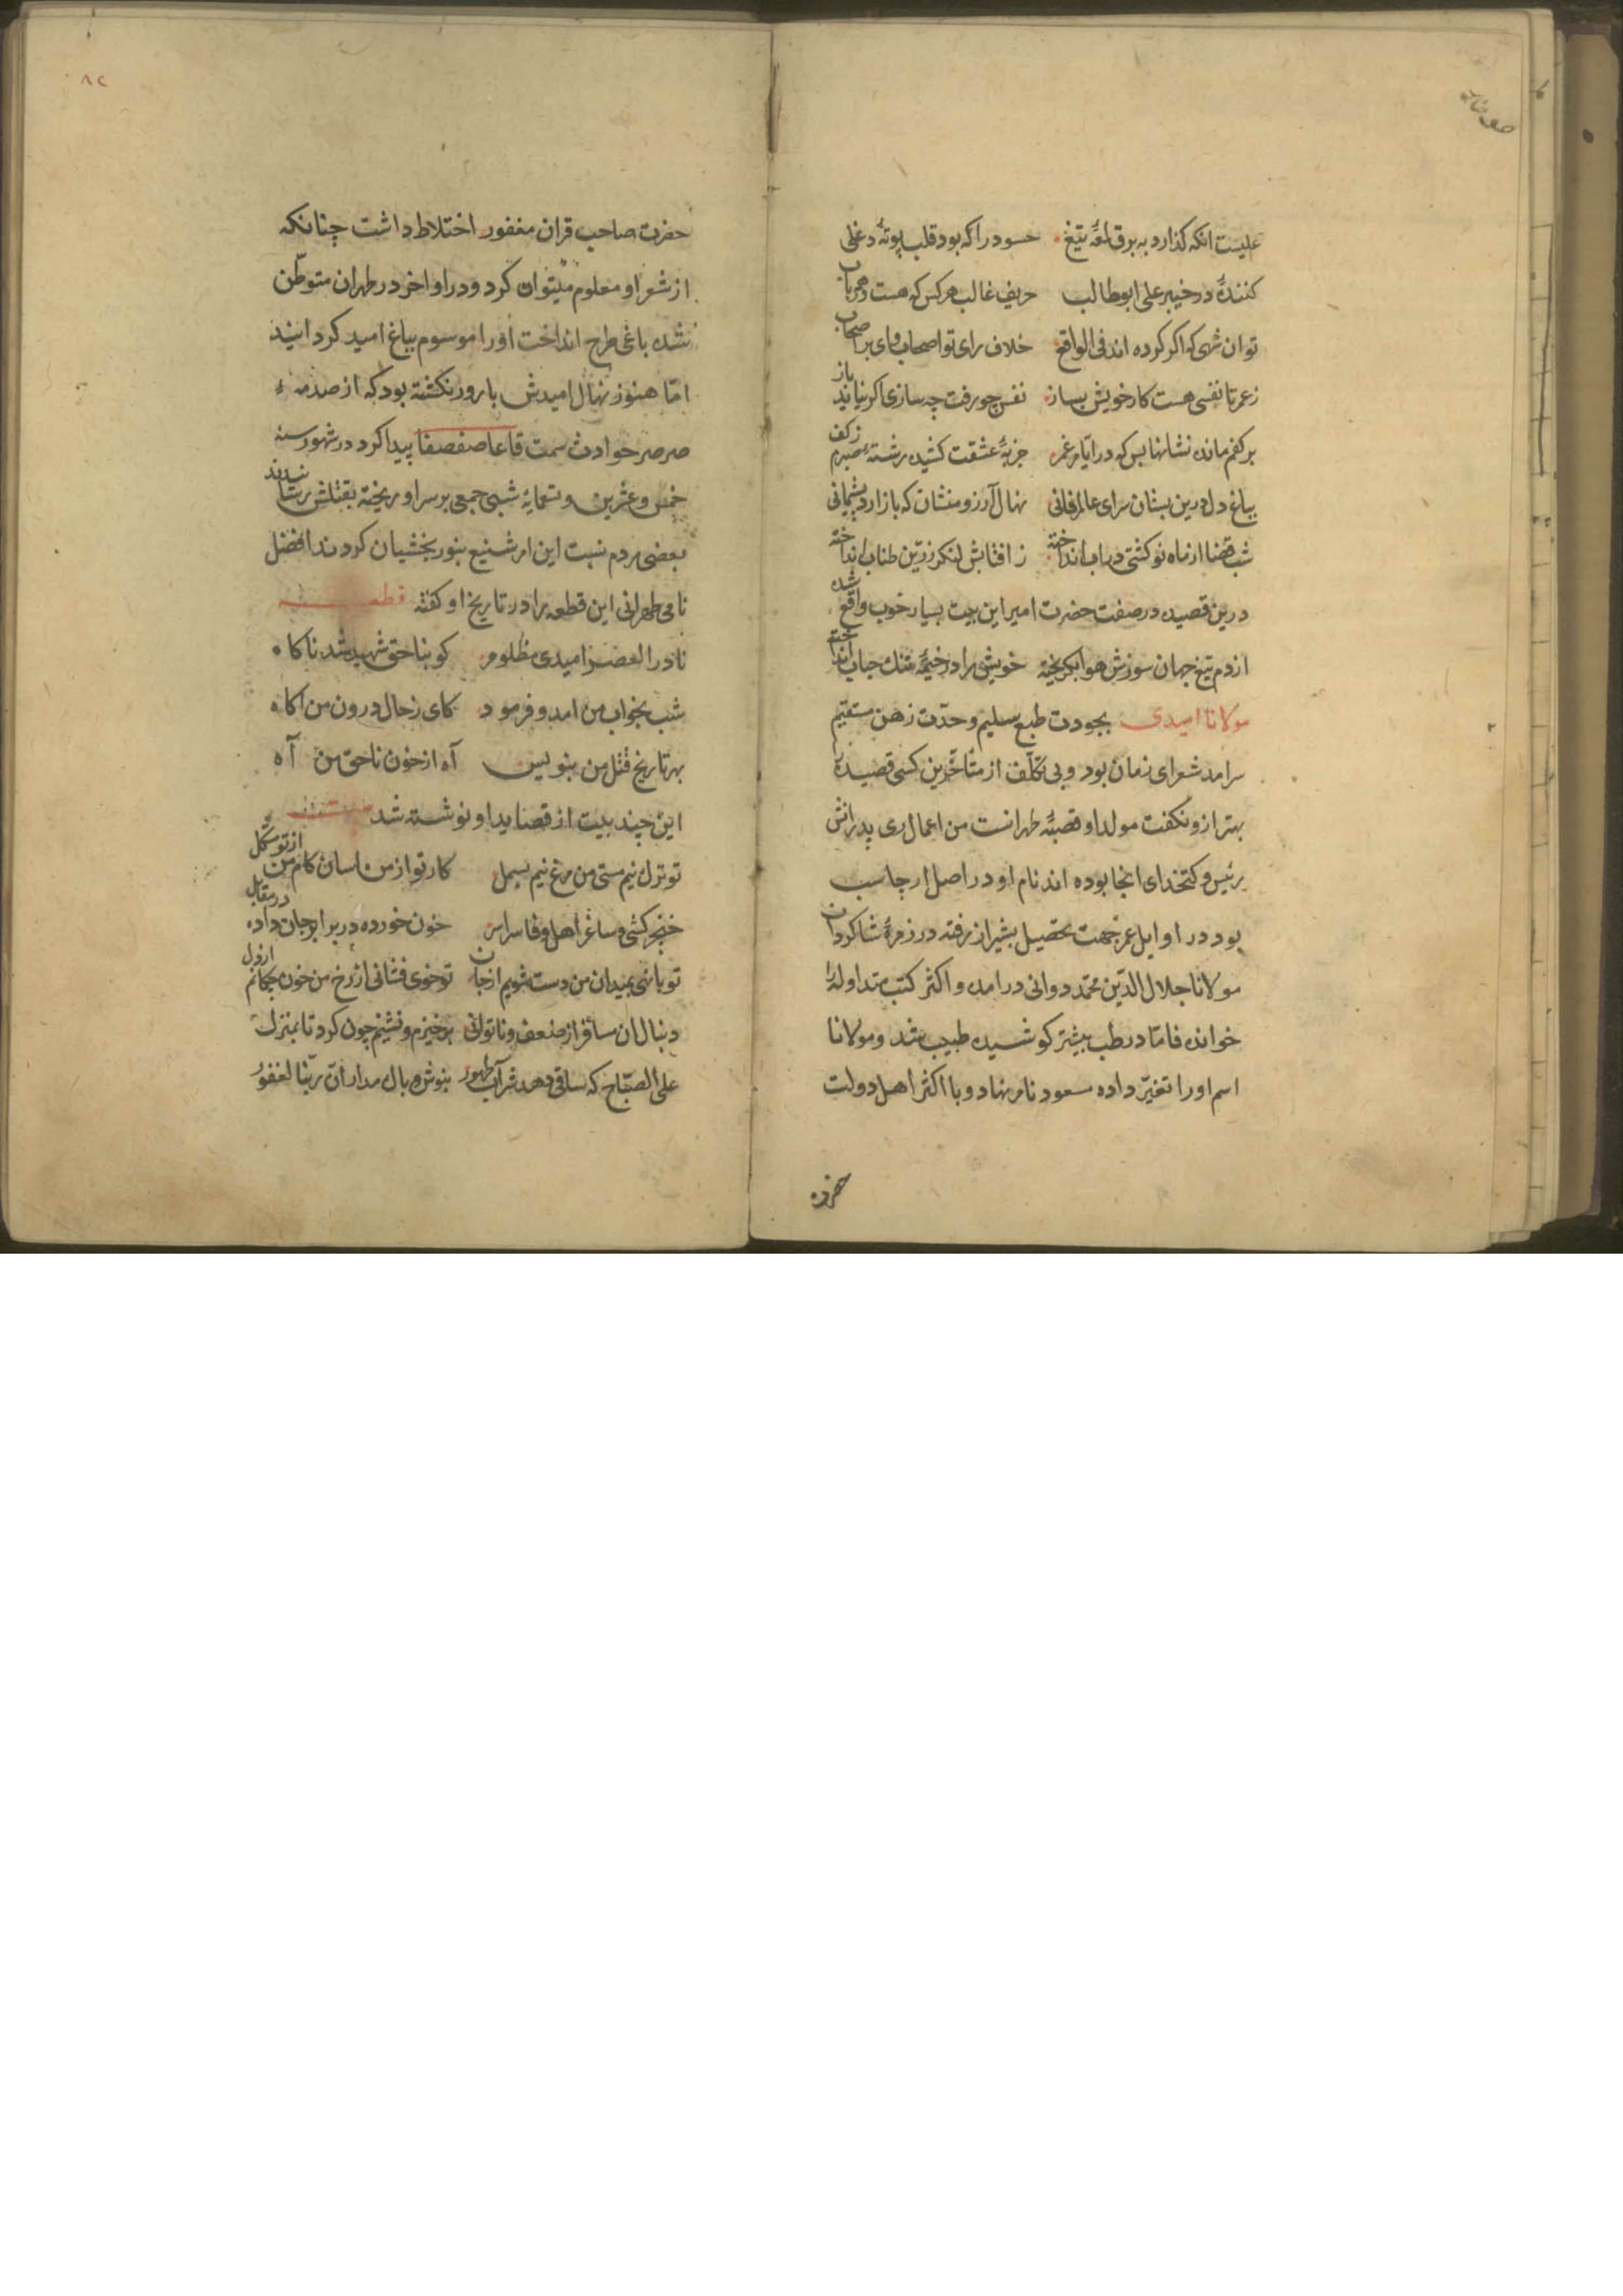 علیست انکه کذارد به برق لمعهٔ تیغ حسود را که بود قلب بوتهٔ دغلی
کنندهٔ در خیبر علی ابوطالب حریف غالب هر کس که هست در هر باب
توان شهی که اکر کرده اند فی الواقع خلاف رای تو اصحاب وای بر اصحاب
ز عمر تا نفسی هست کار خویش بساز نفس چو رفت چه سازی اکر نیاید باز
بر کفم مانده نشانها بس که در ایام غم جزبهٔ عشقت کشیده رشتهٔ صبرم ز کف
بباغ دل درین بستان سرای عالم فانی نهال آرزو منشان که باز ارد پشیمانی
شب قضا از ماه نو کشتی در اب انداخته ز افتابش لنکر زرین طناب انداخته
درین قصیده در صفت حضرت امیر این بیت بسیار خوب واقع شده
از دم تیغ جهان سوزش هوا بکریخته خویش را در خیمهٔ تنک حباب انداخته
مولانا امیدی بجودت طبع سلیم و حدّت زهن مستقیم
سرامد شعرای زمان بود و بی تکلّف از متأخرین کسی قصیده را
بهتر ازو نکفت مولد او قصبهٔ طهرانست من اعمال ری پدرانش
رئیس و کتخدای انجا بوده اند نام او در اصل ارجاسب
بود در اوایل عمر جهت تحصیل بشیراز رفته در زمرهٔ شاکردان
مولانا جلال الدّین محمّد دوانی درامده و اکثر کتب متداوله را
خوانده فامّا در طب بیشتر کوشیده طبیب شد و مولانا
اسم او را تغیّر داده مسعود نام نهاد و با اکثر اهل دولت
حضرت
۸۲
حضرت صاحب قران مغفور اختلاط داشت چنانکه
از شعر او معلوم میتوان کرد و در اواخر در طهران متوطّن
شده باغی طرح انداخت اورا موسوم بباغ امید کردانید
امّا هنوز نهال امیدش بارور نکشته بود که از صدمهٔ
صرصر حوادث سمت قاعا صفصفا پیدا کرد در شهور سنه
خمس و عشرین و تسعمایه شبی جمعی بر سر او ریخته بقتلش رسانیدند
بعضی مردم نسبت این امر شنیع بنور بخشیان کردند افضل
نامی طهرانی این قطعه را در تاریخ او کفته قطعه
نادر العصر امیدی مظلوم کو بناحق شهید شد ناکاه
شب بخواب من امد و فرمود کای ز حال درون من اکاه
بهر تاریخ قتل من بنویس آه از خون ناحق من آه
این چند بیت از قصاید او نوشته شد
تو ترک نیم مستی من مرغ نیم بسمل کار تو از من اسان کام من از تو مشکل
خنجر کشی و ساغر اهل وفا سراسر خون خورده در برابر جان داده در مقابل
تو باشی بمیدان من دست شویم از جان تو خوی فشانی از رخ من خون چکانم از دل
دنبال ان مسافر از ضعف و ناتوانی برخیزم و نشینم چون کرد تا بمنزل
علی الصّباح که ساقی دهد شراب طهور بنوش و بال مدار انّ ربّنا لغفور